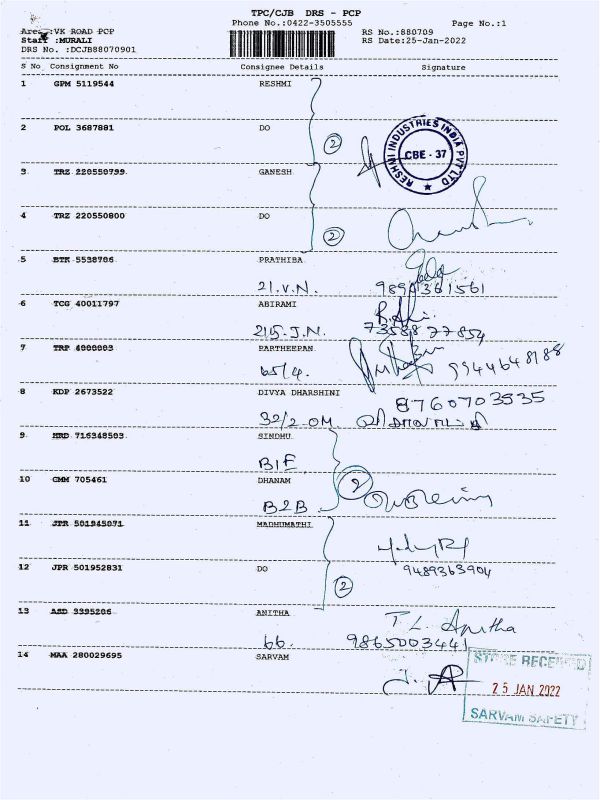 TPC/CJB DRS - PCP
Phone No.:0422-3505555
Page No.:1
Area :VK ROAD PCP
Staff :MURALI
DRS No. :DCJB88070901
RS No.:880709
RS Date:25-Jan-2022
S No Consignment No Consignee Details Signature
1 GPM 5119544 RESHMI
2 POL 3687881 DO
2
RESHMI INDUSTRIES INDIA PVT LTD
CBE - 37
3 TRZ 220550799 GANESH
4 TRZ 220550800 DO
2
5 BTK 5538706 PRATHIBA
21.V.N. 9890361561
6 TCG 40011797 ABIRAMI
215-J.N. 7358877854
7 TRP 4000003 PARTHEEPAN
65/4. 9944648188
8 KDP 2673522 DIVYA DHARSHINI 8760703535
32/2 OM.
9 MRD 716348503 SINDHU
B1F
10 CMM 705461 DHANAM
B2B 2
11 JPR 501945071 MADHUMATHI
12 JPR 501952831 DO 9489363904
2
13 ASD 3395206 ANITHA T.L. Anitha
66. 9865003441
14 MAA 280029695 SARVAM
STORE RECEIVED
25 JAN 2022
SARVAM SAFETY